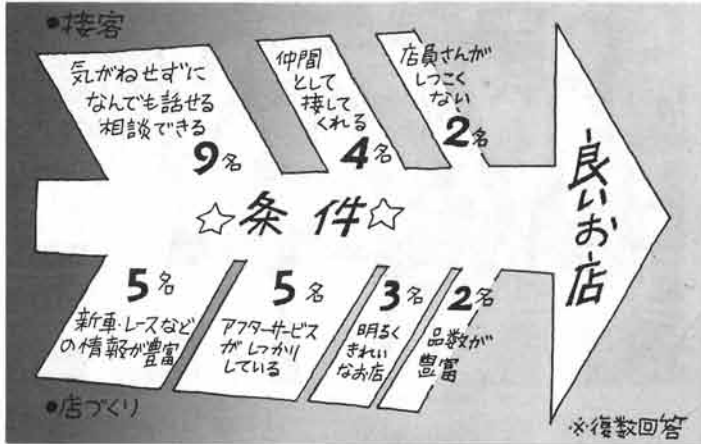 ●接客
気がねせずに
なんでも話せる
相談できる
9名
仲間
として
接して
くれる
4名
店員さんが
しつこく
ない
2名
☆条件☆
良いお店
5名
新車・レースなど
の情報が豊富
5名
アフターサービス
がしっかり
している
3名
明るく
きれい
なお店
2名
品数が
豊富
●店づくり
※復数回答